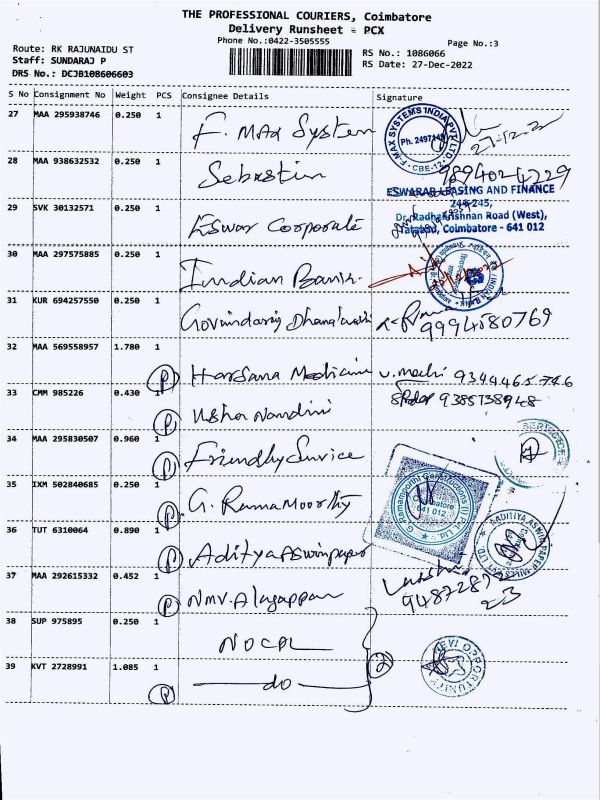 THE PROFESSIONAL COURIERS, Coimbatore
Delivery Runsheet = PCX
Phone No.:0422-3505555
Page No.:3
Route: RK RAJUNAIDU ST
RS No.: 1086066
Staff: SUNDARAJ P
RS Date: 27-Dec-2022
DRS No.: DCJB108606603
S No Consignment No Weight PCS Consignee Details Signature
27 MAA 295938746 0.250 1 F. Max System
F-MAX SYSTEMS INDIA PVT. LTD. Ph. 2497149 CBE-12
28 MAA 938632532 0.250 1 Sebastin 9894024229
ESWARAR LEASING AND FINANCE
244-245,
29 SVK 30132571 0.250 1 Eswar Corporate
Dr. Radhakrishnan Road (West),
Tatabad, Coimbatore - 641 012
30 MAA 297575885 0.250 1 Indian Bank.
INDIAN BANK
31 KUR 694257550 0.250 1
9994580769
32 MAA 569558957 1.780 1 P Harsana Medicine 9344465746
33 CMM 985226 0.430 1 P Usha Nandini 9385738948
34 MAA 295830507 0.960 1 P Friendly Service
35 IXM 502840685 0.250 1 P G. Rama Moorthy
G. Ramamoorthi Constructions (I) Pvt. Ltd. Coimbatore 641 012
36 TUT 6310064 0.890 1 P Aditya Aswin paper
AADITIYA ASWIN PAPER MILLS PVT LTD
37 MAA 292615332 0.452 1 P NMV. Alagappan
38 SUP 975895 0.250 1 NOCPL
2
NEW OPPORTUNITY
39 KVT 2728991 1.085 1 P do